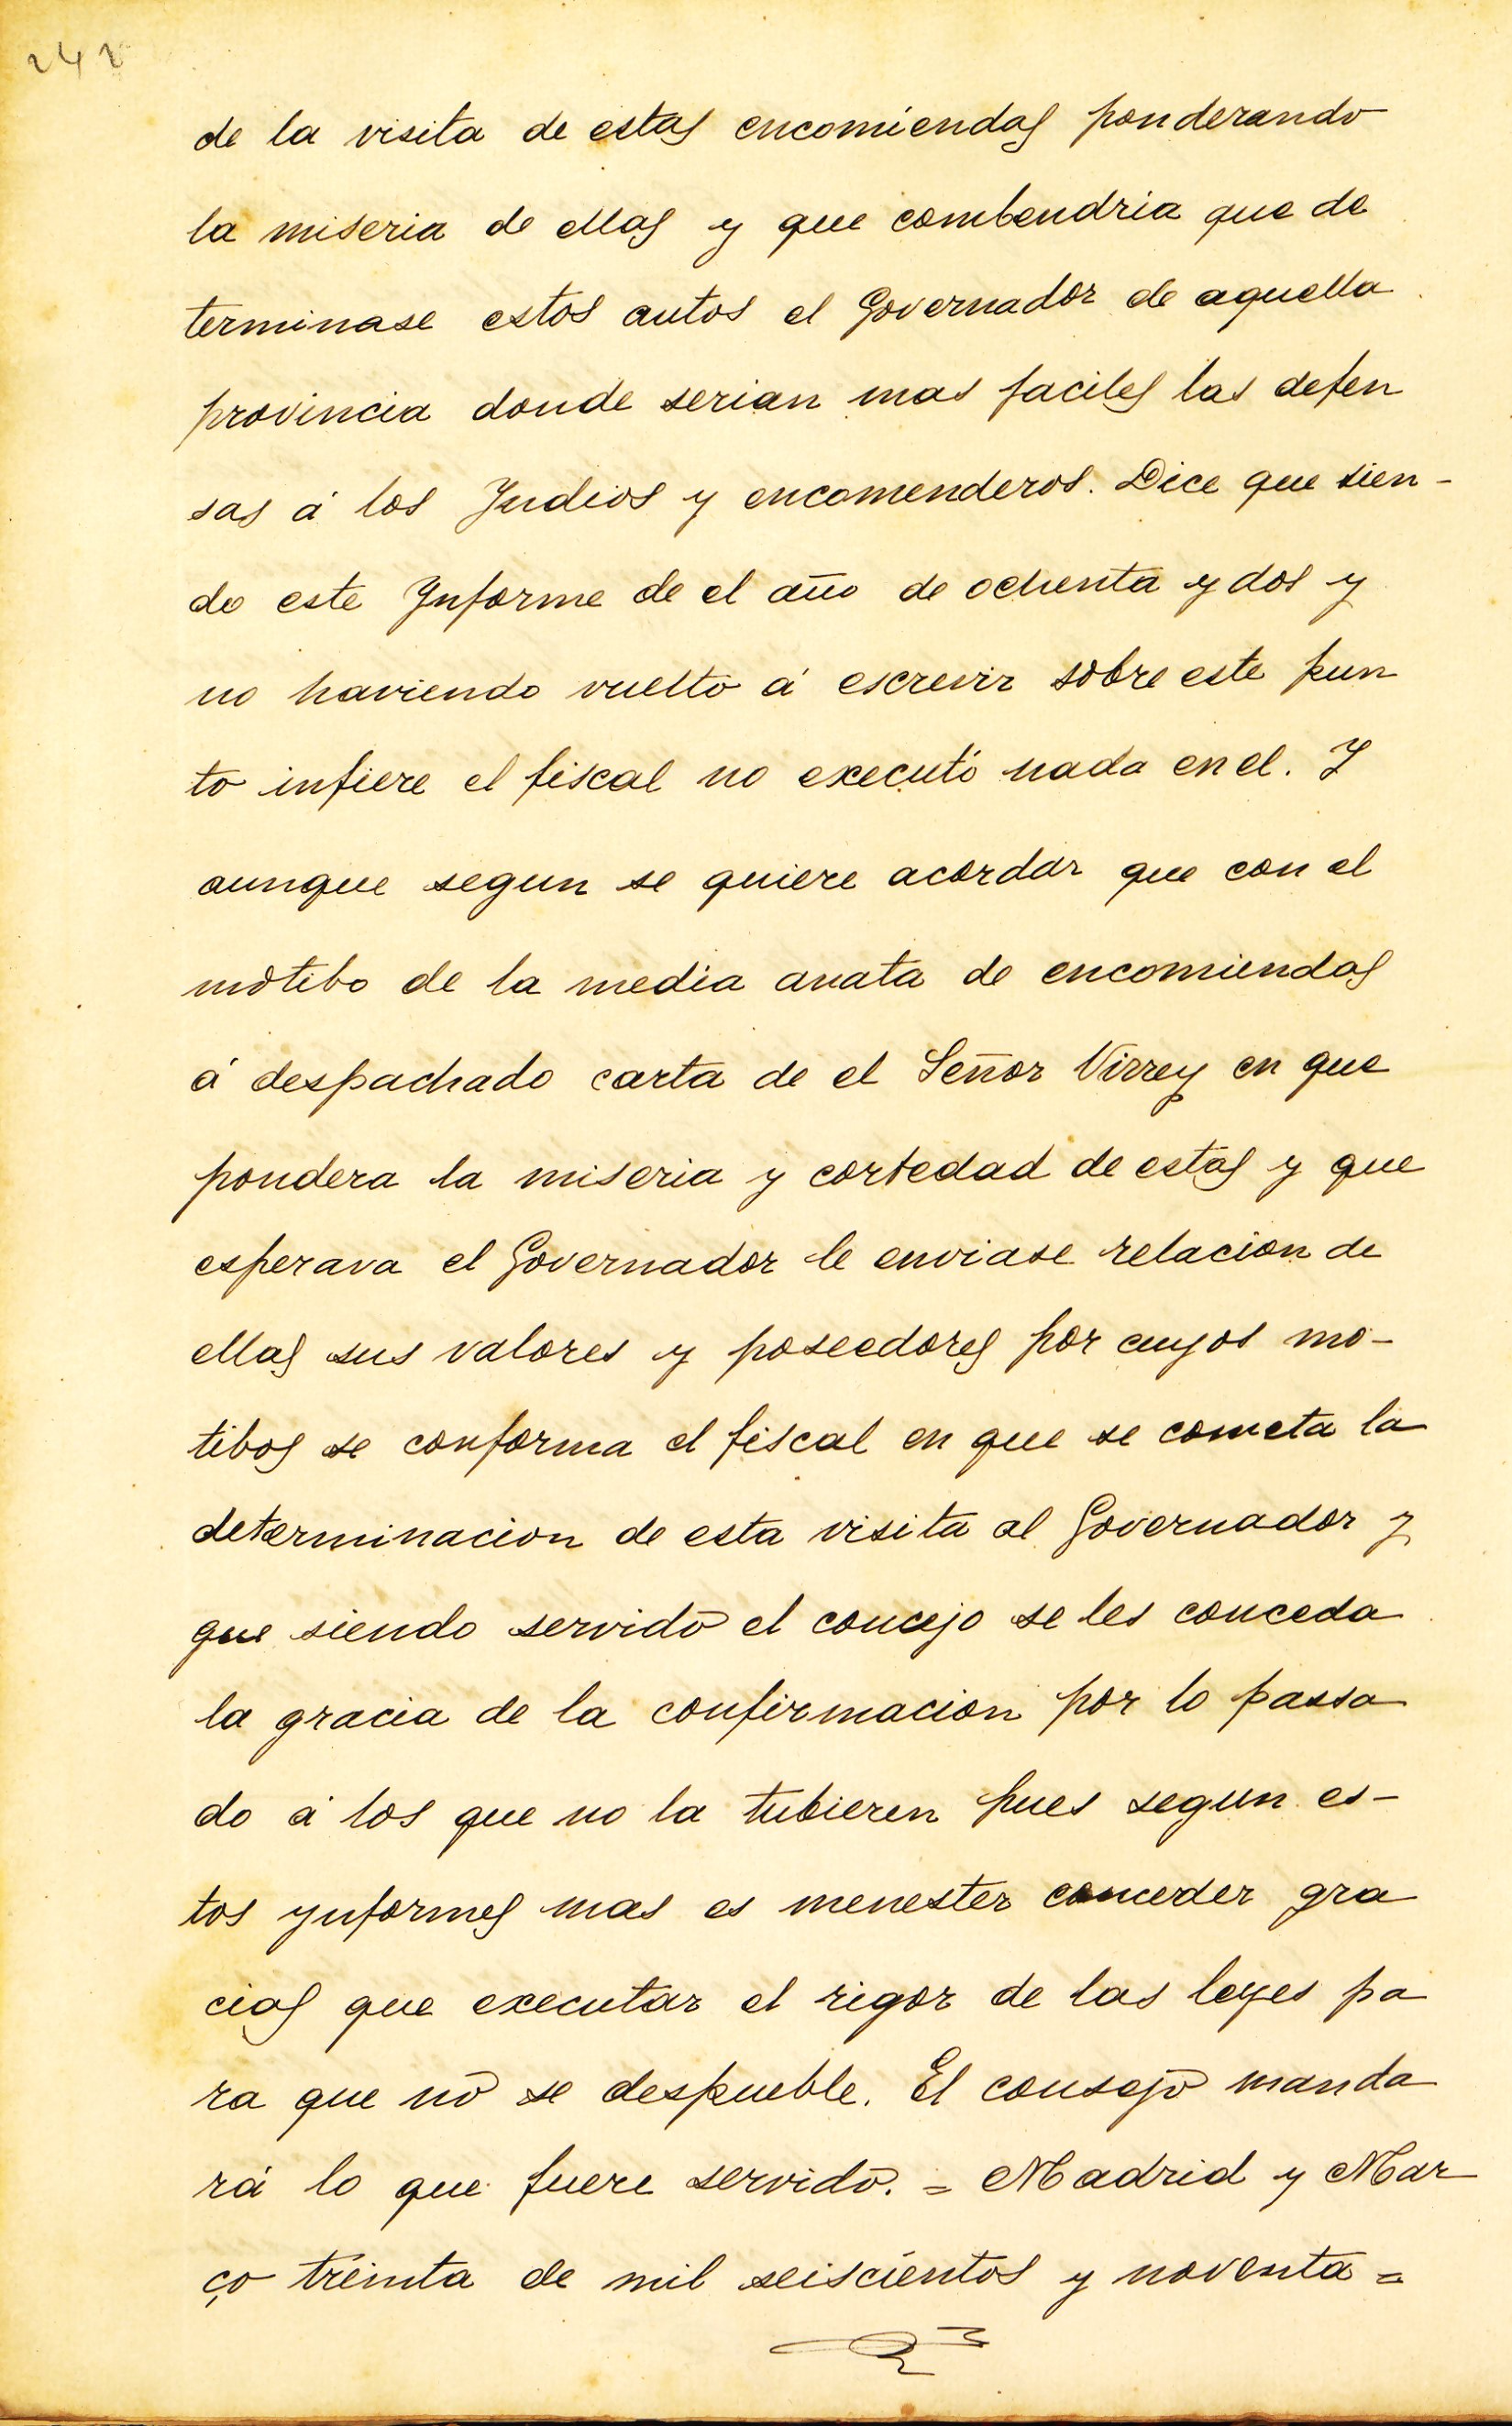 242
de la visita de estas encomiendas ponderando
la miseria de ellas y que combendria que de
terminase estos autos el Governador de aquella
provincia donde serian mas faciles las defen
sas á los Yndios y encomenderos. Dice que sien-
do este Ynforme de el año de ochenta y dos y
no haviendo vuelto á escrevir sobre este pun
to infiere el fiscal no executó nada en el. Y
aunque segun se quiere acordar que con el
motibo de la media anata de encomiendas
á despachado carta de el Señor Virrey en que
pondera la miseria y cortedad de estas y que
esperava el Governador le enviase relacion de
ellas sus valores y poseedores por cuyos mo-
tibos se conforma el fiscal en que se cometa la
determinacion de esta visita al Governador y
que siendo servido el concejo se les conceda
la gracia de la confirmacion por lo passa
do á los que no la tubieren pues segun es-
tos ynformes mas es menester conceder gra
cias que executar el rigor de las leyes pa
ra que no se despueble. El consejo manda
rá lo que fuere servido. = Madrid y Mar
ço treinta de mil seiscientos y noventa =